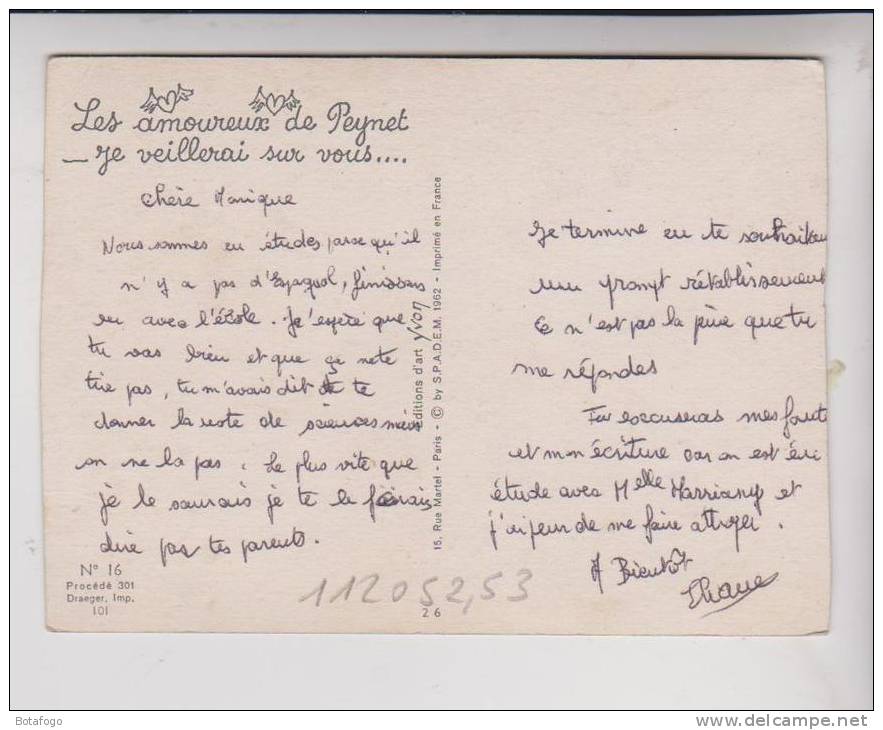 Les amoureux de Peynet
— Je veillerai sur vous....
Chère Monique
Nous sommes en études parce qu'il
n'y a pas d'Espagnol, finissons
avec l'école. J'espère que
tu vas bien et que ça ne te
tire pas, tu m'avais dit de te
donner la note de sciences mais
on ne la pas. Le plus vite que
je le saurais je te la ferais
dire par tes parents.
N° 16
Procédé 301
Draeger, Imp.
101
Editions d'art Yvon
15, Rue Martel - Paris - © by S.P.A.D.E.M. 1962 - Imprimé en France
26
Je termine en te souhaitan
un prompt rétablissement
Ce n'est pas la peine que tu
me répondes
Tu excuseras mes faute
et mon écriture car on est en
étude avec Melle et
j'ai peur de me faire attraper.
A Bientôt
112052,53
Botafogo
www.delcampe.net